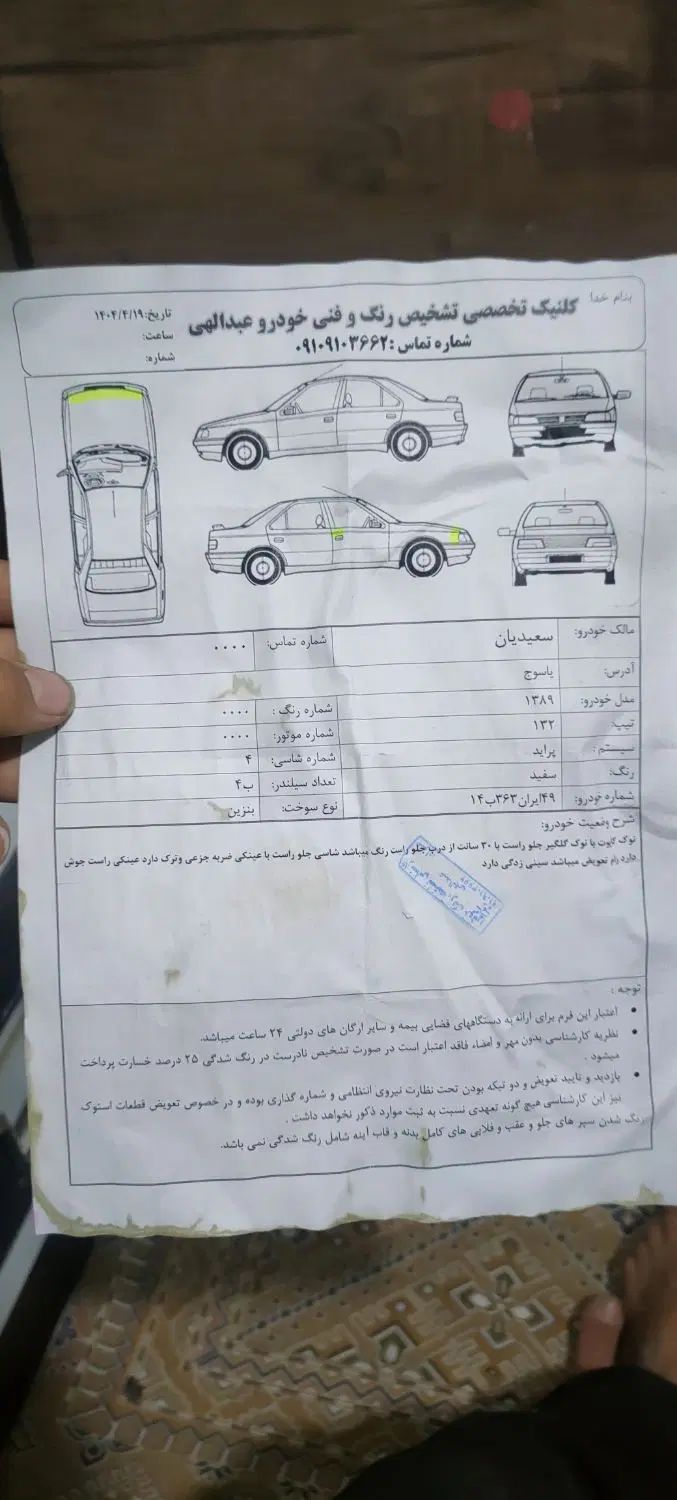 بنام خدا
کلنیک تخصصی تشخیص رنگ و فنی خودرو عبدالهی
شماره تماس :۰۹۱۰۹۱۰۳۶۶۲
تاریخ:۱۴۰۴/۴/۱۹
ساعت:
شماره:
مالک خودرو: سعیدیان شماره تماس: ۰۰۰۰
آدرس: یاسوج
مدل خودرو: ۱۳۸۹ شماره رنگ : ۰۰۰۰
تیپ: ۱۳۲ شماره موتور: ۰۰۰۰
سیستم: پراید شماره شاسی: ۴
رنگ: سفید تعداد سیلندر: ب۴
شماره خودرو: ۴۹ایران۳۶۳ب۱۴ نوع سوخت: بنزین
شرح وضعیت خودرو:
نوک کاپوت با نوک گلگیر جلو راست با ۳۰ سانت از درب جلو راست رنگ میباشد شاسی جلو راست با عینکی ضربه جزعی وترک دارد عینکی راست جوش
دارد رام تعویض میباشد سینی زدگی دارد
توجه :
اعتبار این فرم برای ارائه به دستگاههای قضایی بیمه و سایر ارگان های دولتی ۲۴ ساعت میباشد.
نظریه کارشناسی بدون مهر و امضاء فاقد اعتبار است در صورت تشخیص نادرست در رنگ شدگی ۲۵ درصد خسارت پرداخت
میشود .
بازدید و تایید تعویض و دو تیکه بودن تحت نظارت نیروی انتظامی و شماره گذاری بوده و در خصوص تعویض قطعات استوک
نیز این کارشناسی هیچ گونه تعهدی نسبت به ثبت موارد ذکور نخواهد داشت .
رنگ شدن سپر های جلو و عقب و فلاپی های کامل بدنه و قاب اینه شامل رنگ شدگی نمی باشد.